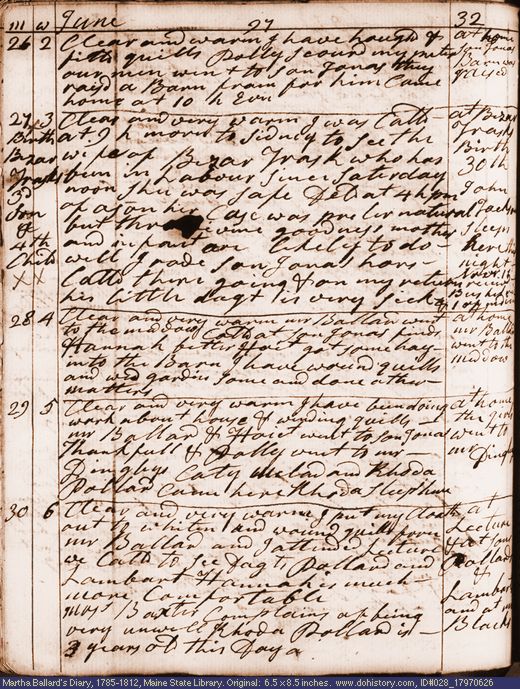 m w June 27 32
26 2 Clear and warm I have houghd &
fill'd quills Polly scourd my puter
our men went to son Jonas they
raisd a Barn fraim for him Came
home at 10 h Evn
at home
son Jonas
Barn was
raised
27 3 Clear and very warm I was Calld
at 9 h morn to Sidney to see the
wife of Bizar Trash who has
been in Labour since Saturday
noon shee was safe Det at 4 h pm
of a son her Case was preternatural
but thro Divine goodness mother
and infant are Chely to do
well I rode son Jonas hors
Calld there going & on my return
his little dagt is very sick
Birth
Bizar
Trashs
3d
Son
&
4th
Child
X X
at Bizar
Trashs
Birth
30th
John
Jackson
sleeps
here this
night
28 4 Clear and very warm mr Ballard went
to the meddow I Calld at son Jonas find
Hannah better got some hay
into the Barn I have wound quills
and weed gardin some and done other
matters
at home
mr Ballard
went to the
meddow
29 5 Clear and very warm I have been doing
work about house & winding quills
mr Ballard & How went to son Jonas
Thankfull & Dolly went to mr
Dingleys Caty and Rhoda
Pollard Came here Rhoda sleeps here
at home
the girls
went to
mr Dingleys
30 6 Clear and very warm I put my Cloath
out to whiten and wound quills some
mr Ballard and I attend Lecture
we Calld to see Dagts Pollard and
Lambart Hannah is much
more Comfortable
mrs Baxter Complains of being
very unwell Rhoda Pollard is
3 years old this Day
at
Lecture
& at son
Pollards
&
Lambards
and at mr
Blacks
Martha Ballard's Diary, 1785-1812, Maine State Library. Original: 6.5 x 8.5 inches. www.dohistory.com, ID#028_17970626